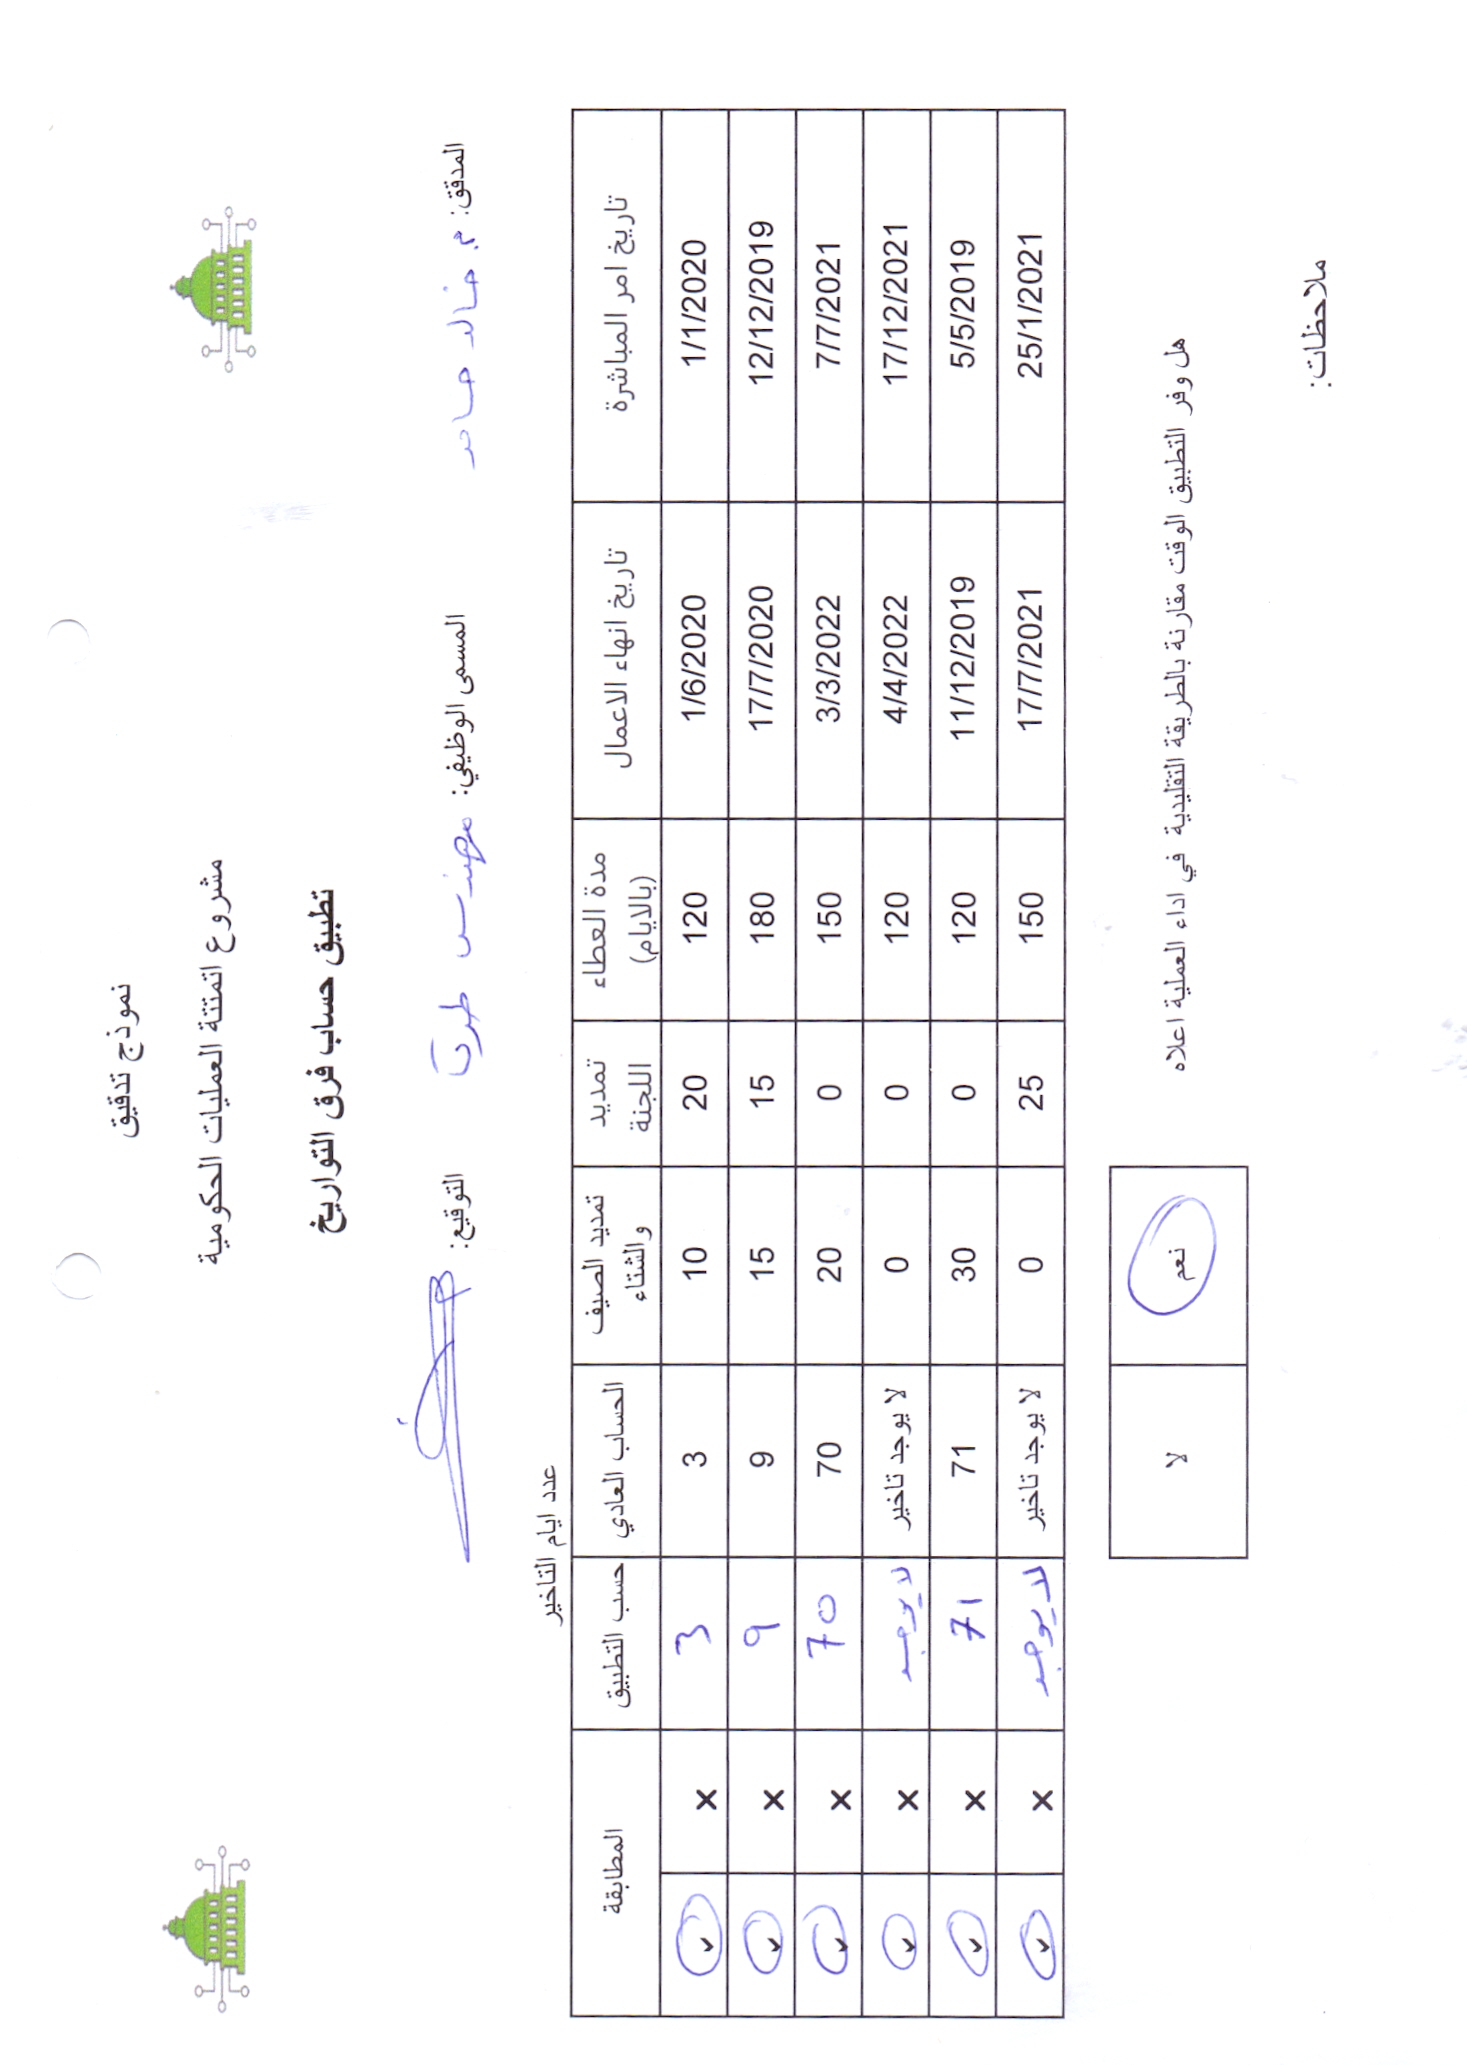 نموذج تدقيق
مشروع اتمتتة العمليات الحكومية
تطبيق حساب فرق التواريخ
المدقق: م. خالد حامد المسمى الوظيفي: مهندس طرق التوقيع:
عدد ايام التاخير
تاريخ امر المباشرة تاريخ انهاء الاعمال مدة العطاء (بالايام) تمديد اللجنة تمديد الصيف والشتاء الحساب العادي حسب التطبيق المطابقة
1/1/2020 1/6/2020 120 20 10 3 3 × ✓
12/12/2019 17/7/2020 180 15 15 9 9 × ✓
7/7/2021 3/3/2022 150 0 20 70 70 × ✓
17/12/2021 4/4/2022 120 0 0 لا يوجد تاخير لا يوجد × ✓
5/5/2019 11/12/2019 120 0 30 71 71 × ✓
25/1/2021 17/7/2021 150 25 0 لا يوجد تاخير لا يوجد × ✓
هل وفر التطبيق الوقت مقارنة بالطريقة التقليدية في اداء العملية اعلاه نعم لا
ملاحظات: